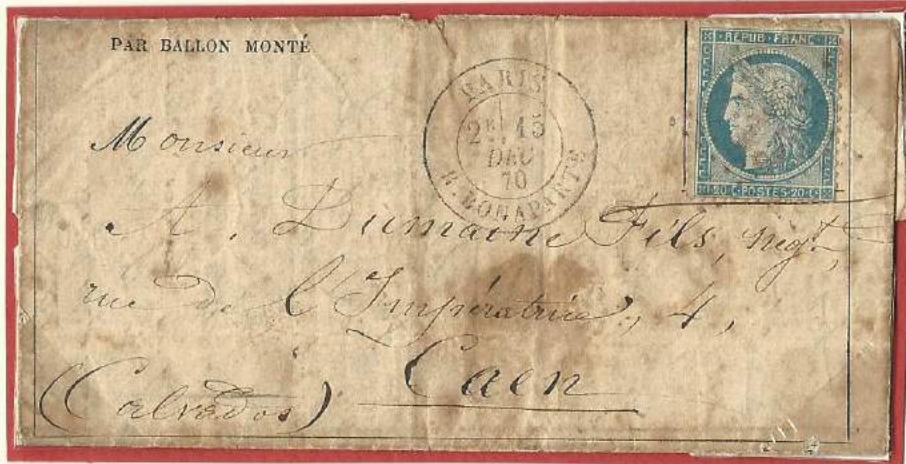 PAR BALLON MONTÉ
PARIS
2E 15
DEC
70
R. BONAPARTE
REPUB FRANC
20 C POSTES 20 C
Monsieur
A. Dumaine Fils, négt,
rue de l'Impératrice, 4,
Caen
(Calvados)